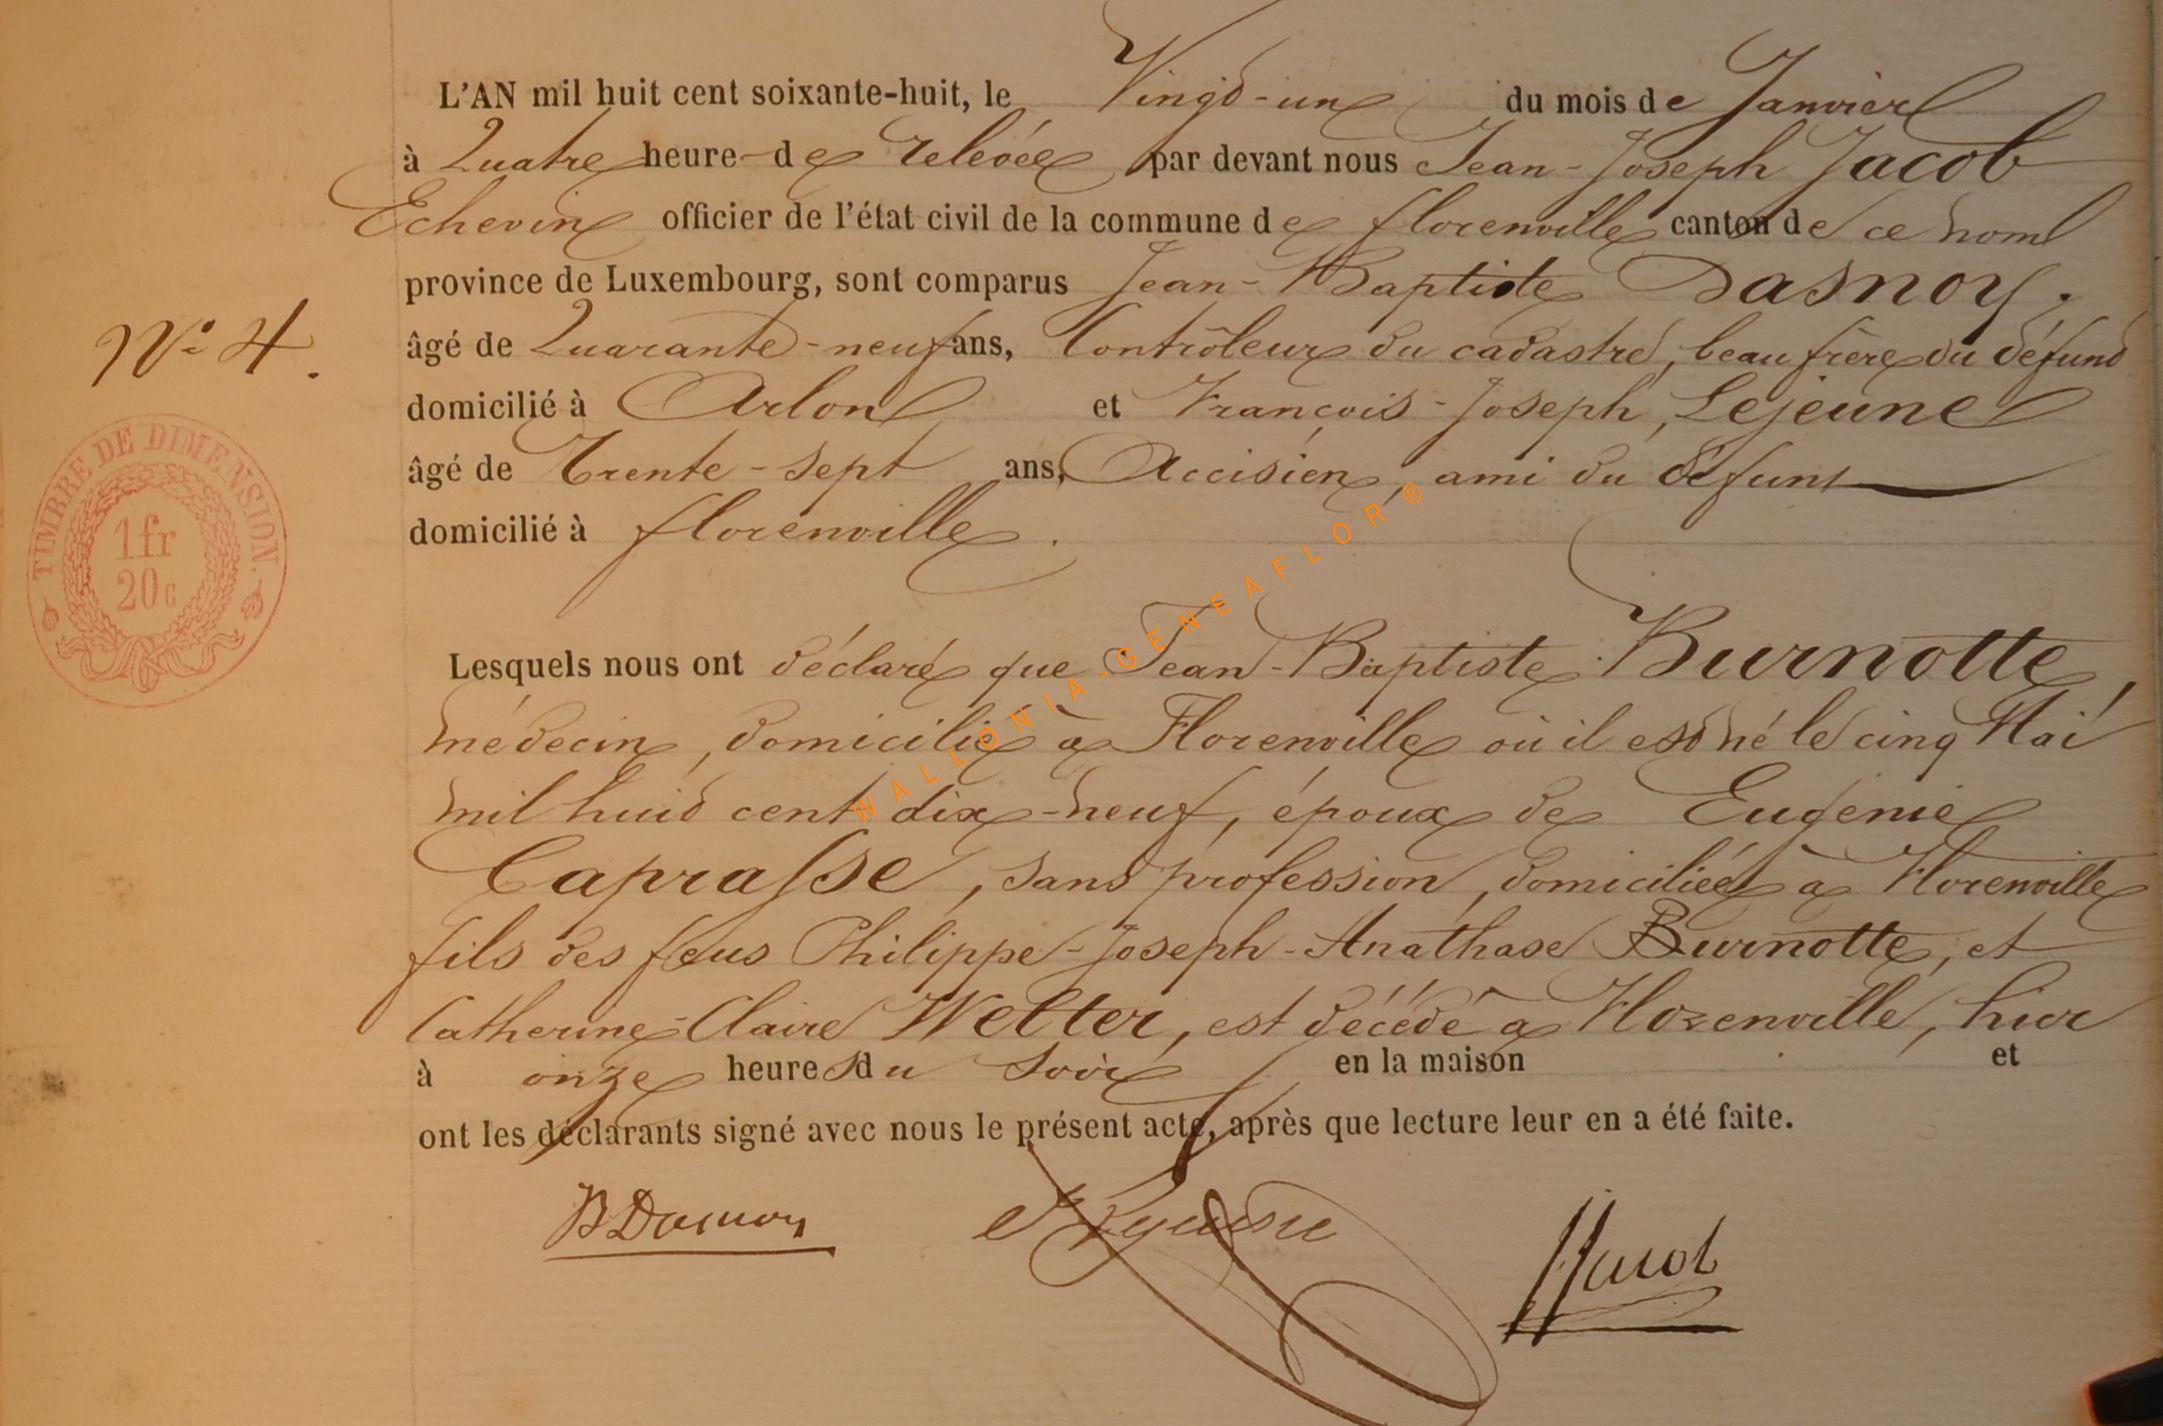 L'AN mil huit cent soixante-huit, le Vingt-un du mois de Janvier
à Quatre heure de relevée par devant nous Jean-Joseph Jacob
Echevin officier de l'état civil de la commune de florenville canton de ce nom
province de Luxembourg, sont comparus Jean-Baptiste Dasnoy.
N° 4.
âgé de Quarante-neuf ans, Contrôleur du cadastre, beau frère du défunt
domicilié à Arlon et François-Joseph, Lejeune
âgé de Trente-sept ans, Accisien, ami du défunt
domicilié à florenville.
TIMBRE DE DIMENSION.
1 fr
20 c
WALLONIA-GENEAFLOR®
Lesquels nous ont déclaré que Jean-Baptiste Burnotte,
médecin, domicilié à Florenville où il est né le cinq Mai
mil huit cent dix-neuf, époux de Eugénie
Caprasse, sans profession, domiciliée à Florenville
fils des feus Philippe-Joseph-Anathase Burnotte, et
Catherine-Claire Welter, est décédé à Florenville, hier
à onze heures du soir en la maison et
ont les déclarants signé avec nous le présent acte, après que lecture leur en a été faite.
B Dasnoy Lejeune JJacob